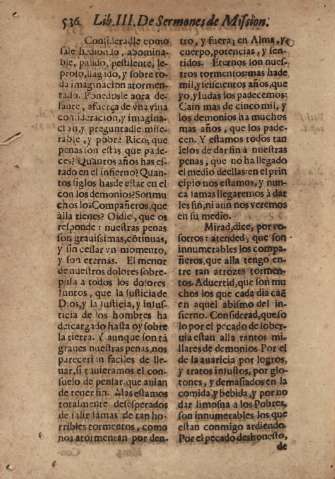 536 Lib. III. De Sermones de Mission.
Consideradle como
sale hediondo, abomina-
ble, palido, pestilente, le-
proso, llagado, y sobre to-
da imaginacion atormen-
tado. Ponedosle aora de-
lante, à fuerça de vna viua
consideracion, y imagina-
cion, y preguntadle mise-
rable, y pobre Rico, que
penas son estas que pade-
ces? Quantos años has es-
tado en el infierno? Quan-
tos siglos has de estar en el
con los demonios? Son mu-
chos los Compañeros, que
allà tienes? Oidle, que os
responde: nuestras penas
son grauissimas, continuas,
y sin cessar vn momento,
y son eternas. El menor
de nuestros dolores sobre-
puja a todos los dolores
juntos, que la justicia de
Dios, y la justicia, y injus-
ticia de los hombres ha
descargado hasta oy sobre
la tierra. Y aunque son tã
graues nuestras penas, nos
pareceriã faciles de lle-
uar, si tuuieramos el con-
suelo de pensar, que auian
de tener fin. Mas estamos
totalmente desesperados
de salir jamas de tan ho-
rribles tormentos, como
nos atormentan por den-
tro, y fuera; en Alma, y
cuerpo, potencias, y sen-
tidos. Eternos son nues-
tros tormentos: mas ha de
mil, y seiscientos años, que
yo, y Iudas los padecemos:
Cain mas de cinco mil, y
los demonios ha muchos
mas años, que los pade-
cen. Y estamos todos tan
lexos de dar fin à nuestras
penas, que no ha llegado
el medio dellas: en el prin-
cipio nos estamos, y nun-
ca jamas llegaremos à dar
les fin, ni aun nos veremos
en su medio.
Mirad, dice, por vo-
sotros: atended, que son
innumerables los compa-
ñeros, que allà tengo en-
tre tan atroces tormen-
tos. Aduertid, que son mu
chos los que cada dia caẽ
en aquel abismo del in-
fierno. Considerad, que so
lo por el pecado de sober-
uia estàn allà tantos mi-
llares de demonios. Por el
de la auaricia por logros,
y tratos injustos, por glo-
tones, y demasiados en la
comida, y bebida, y por no
dar limosna à los Pobres,
son innumerables los que
estan conmigo ardiendo.
Por el pecado deshonesto,
de